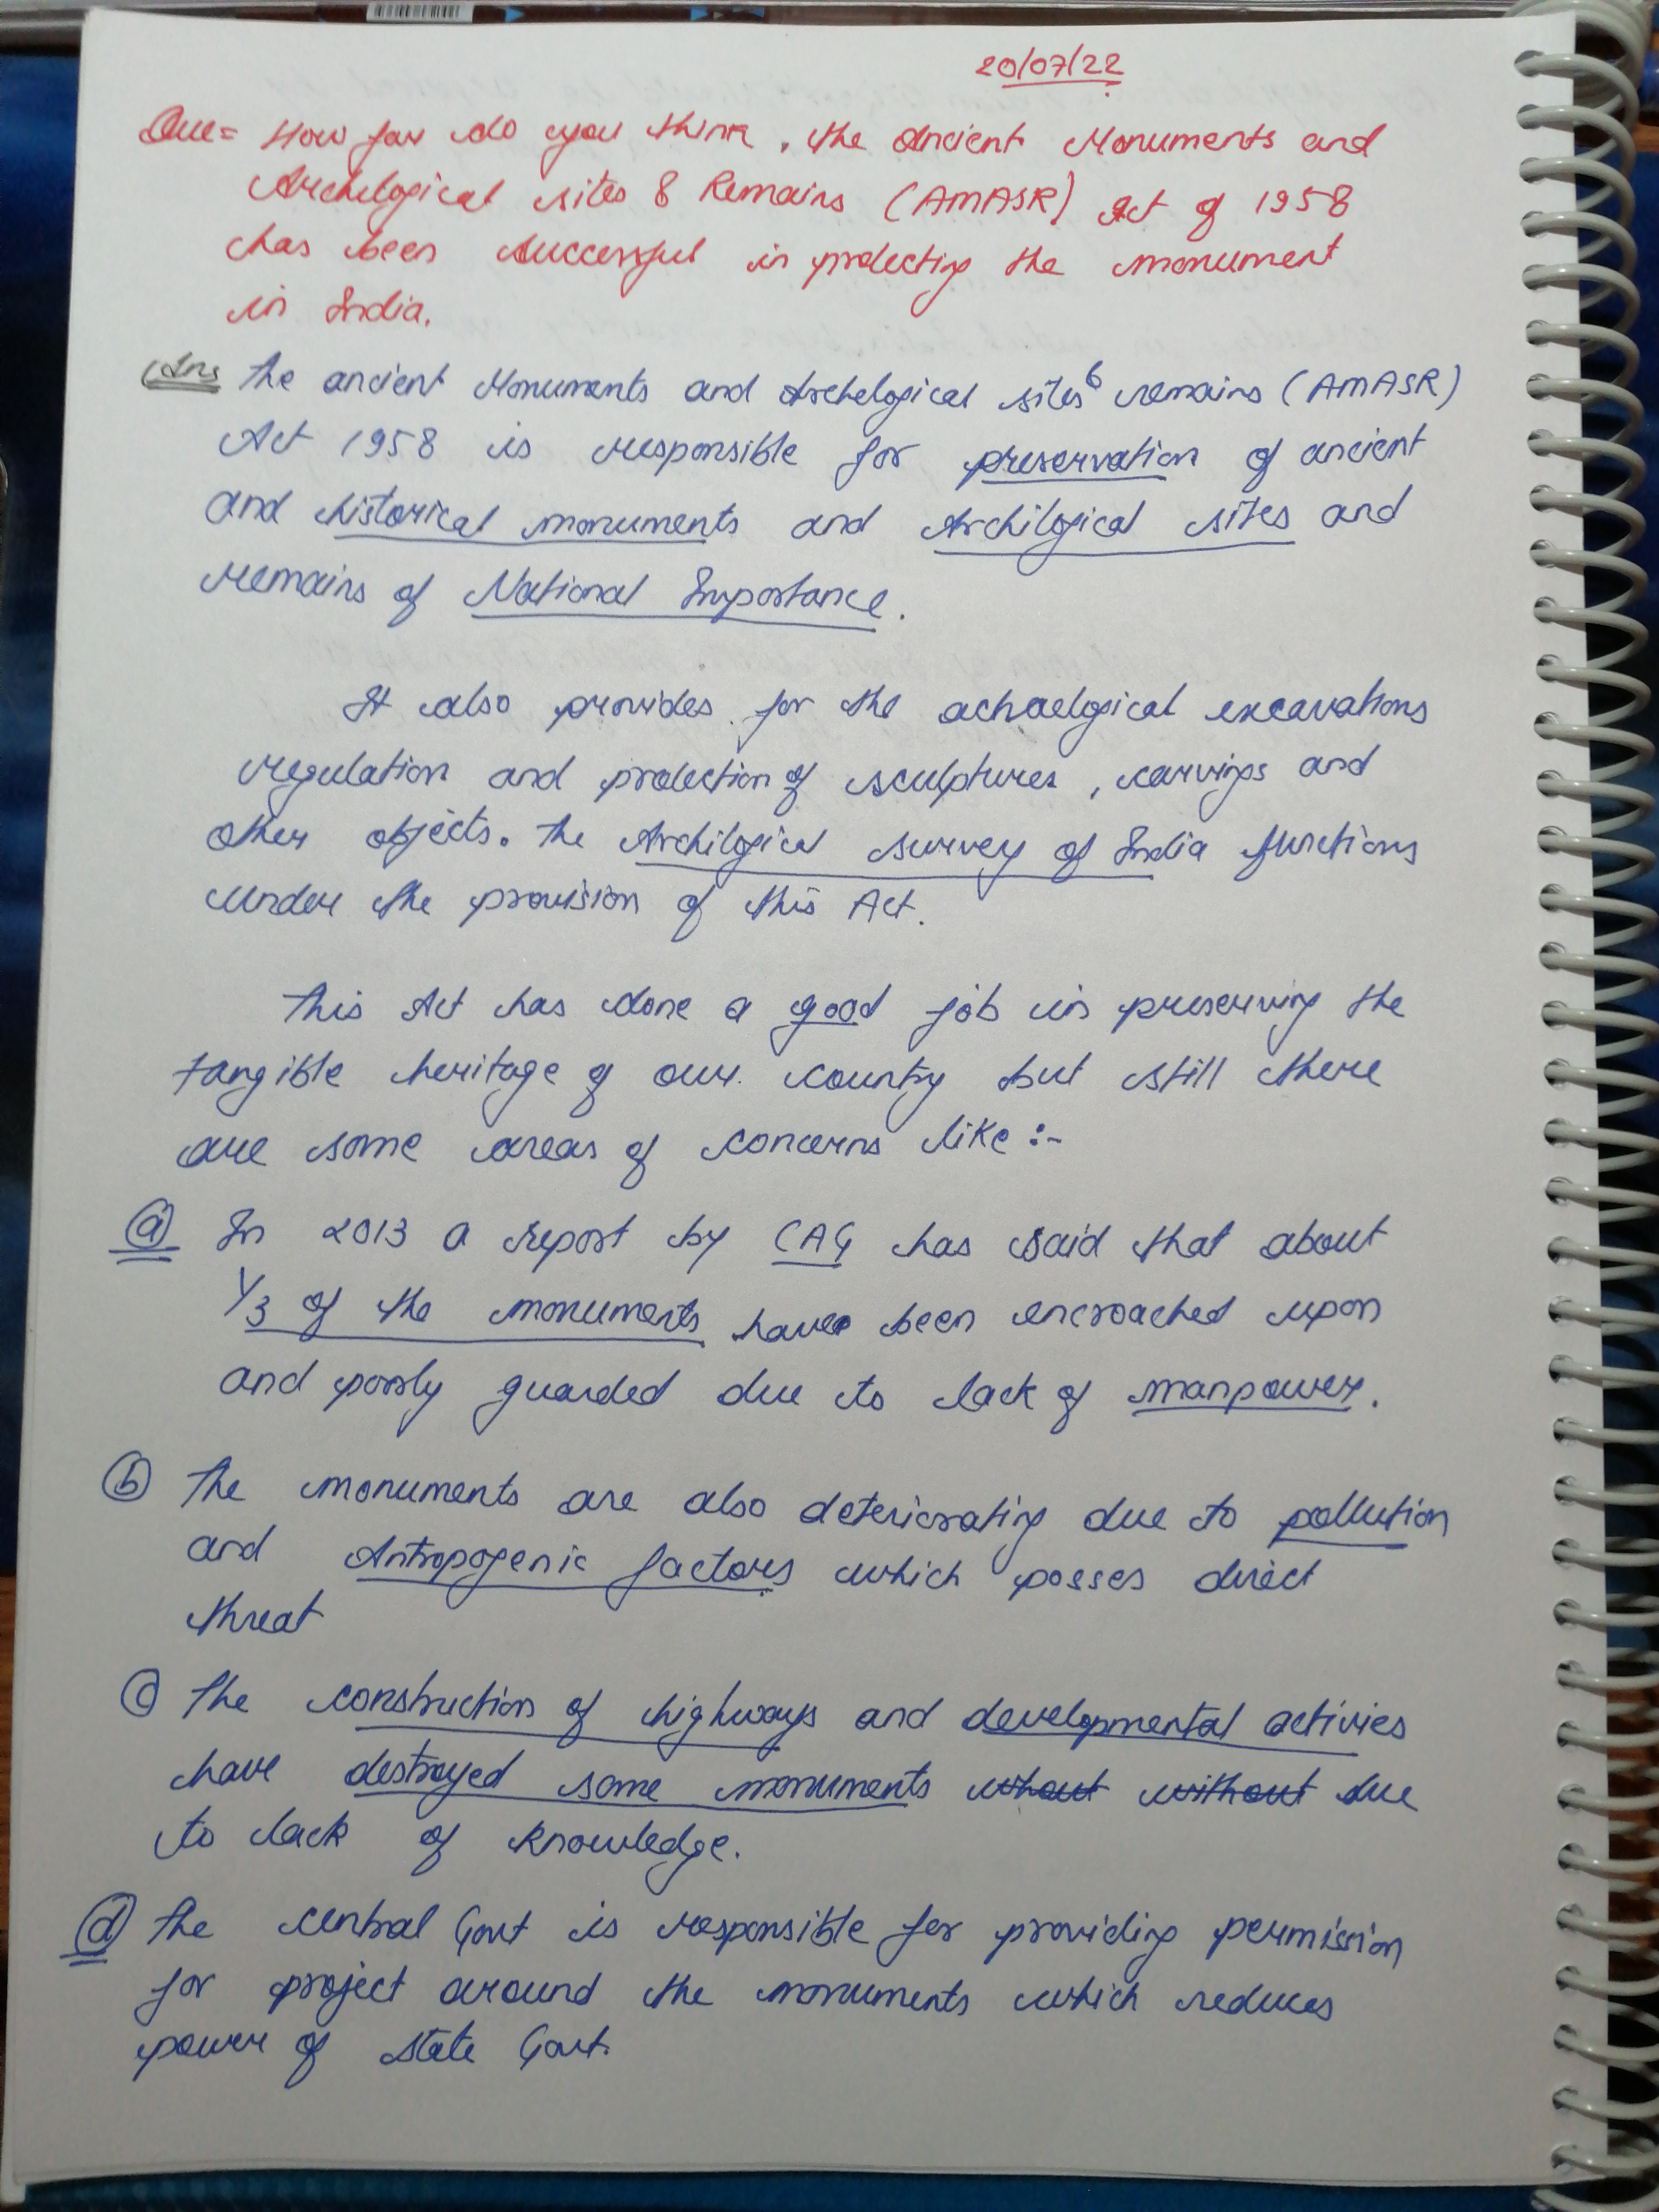 20/07/22
Que= How far do you think, the Ancient Monuments and
Archelogical sites & Remains (AMASR) Act of 1958
has been successful in protecting the monument
in India.
Ans The ancient Monuments and Archelogical sites & remains (AMASR)
Act 1958 is responsible for preservation of ancient
and historical monuments and Archilogical sites and
remains of National Importance.
It also provides for the achaelogical excavations
regulation and protection of sculptures, carvings and
other objects. The Archilogical survey of India functions
under the provision of this Act.
This Act has done a good job in preserving the
tangible heritage of our country but still there
are some areas of concerns like :-
(a) In 2013 a report by CAG has said that about
1/3 of the monuments have been encroached upon
and poorly guarded due to lack of manpower.
(b) The monuments are also deteriorating due to pollution
and Antropogenic factors which posses direct
threat
(c) The construction of highways and developmental activies
have destroyed some monuments whout without due
to lack of knowledge.
(d) The central Govt is responsible for providing permission
for project around the monuments which reduces
power of state Govt.